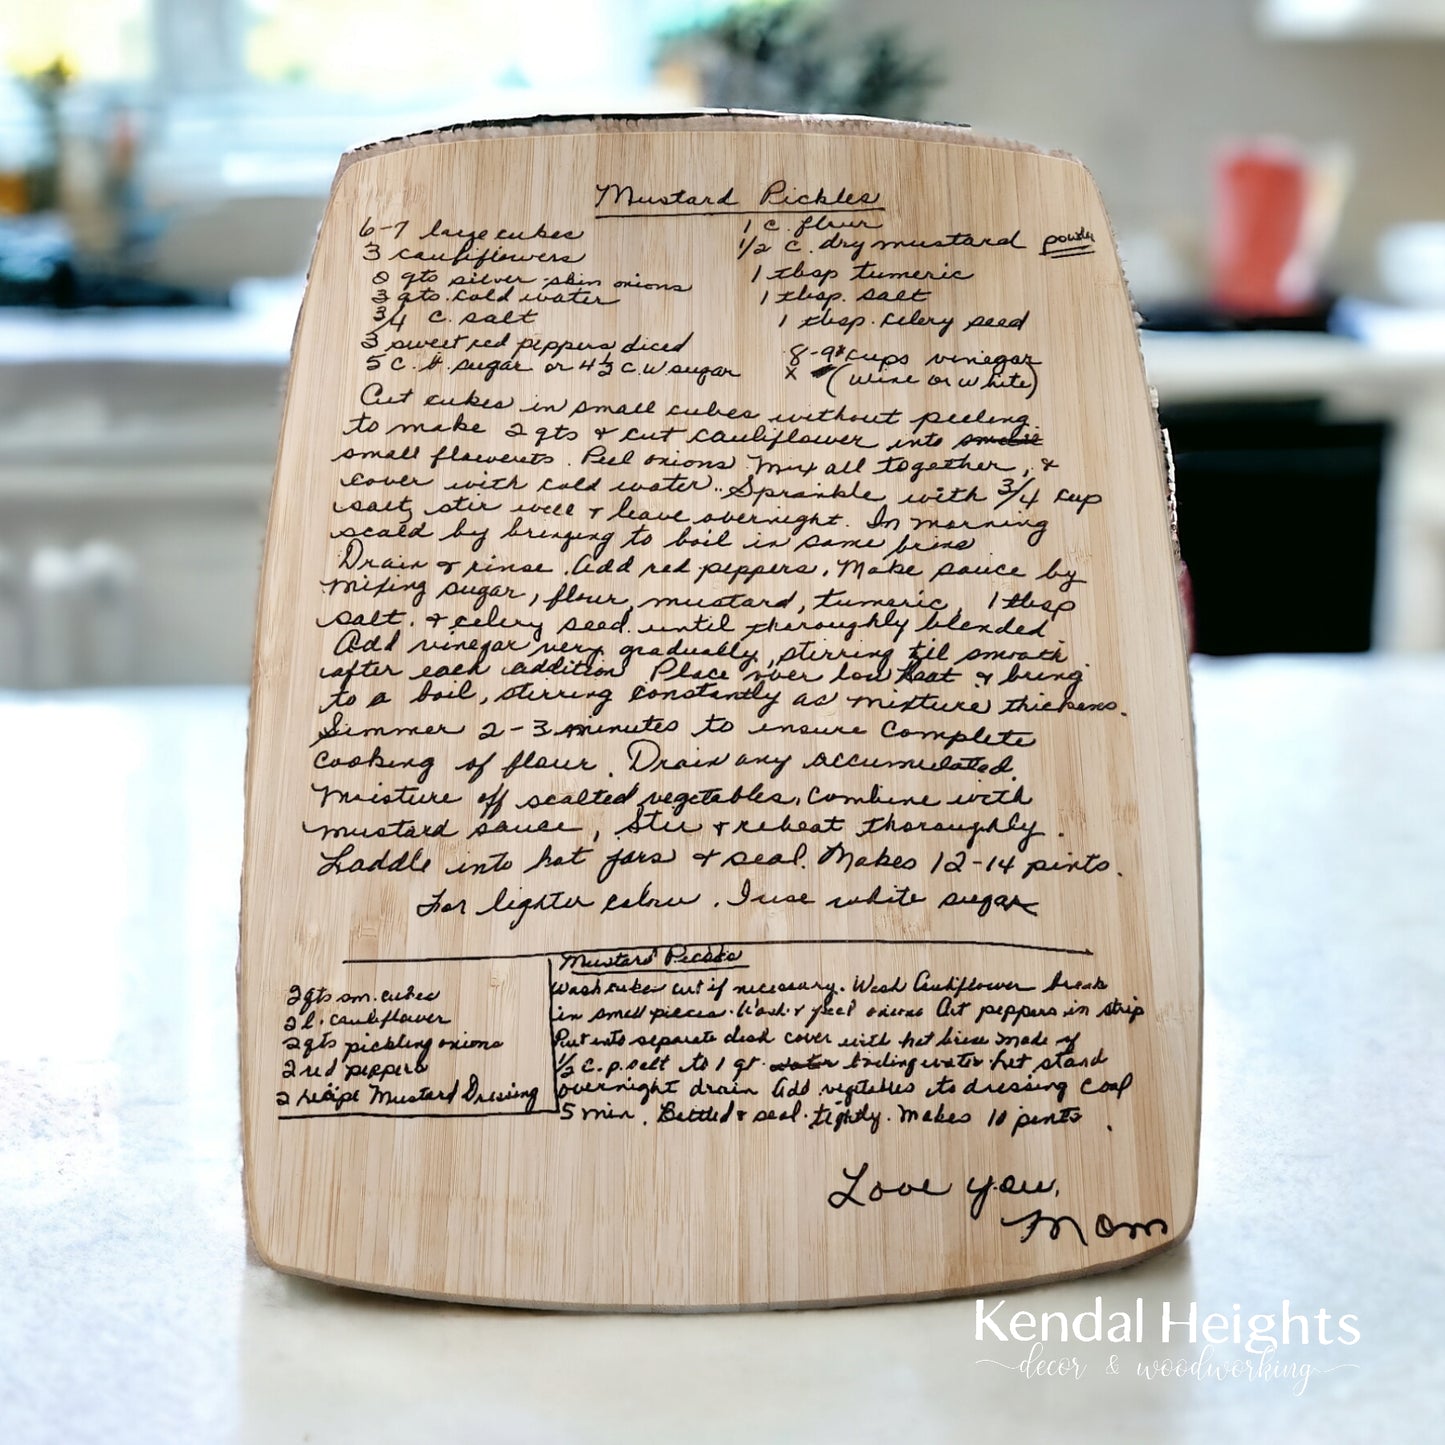 Mustard Pickles
6-7 large cukes
3 cauliflowers
qts silver skin onions
3 qts. cold water
3/4 c. salt
3 sweet red peppers diced
5 c. sugar or 4 1/2 c. w sugar
1 c. flour
1/2 c. dry mustard powder
1 tbsp tumeric
1 tbsp. salt
1 tbsp. celery seed
8-9 cups vinegar
x (wine or white)
Cut cukes in small cubes without peeling
to make 2 qts & cut cauliflower into
small flowerets. Peel onions. Mix all together, &
cover with cold water.. Sprinkle with 3/4 cup
salt, stir well & leave overnight. In morning
scald by bringing to boil in same brine
Drain & rinse. Add red peppers. Make sauce by
mixing sugar, flour, mustard, tumeric, 1 tbsp
salt. & celery seed. until thoroughly blended
Add vinegar very gradually, stirring til smooth
after each addition Place over low heat & bring
to a boil, stirring constantly as mixture thickens.
Simmer 2-3 minutes to insure complete
cooking of flour. Drain any accumulated
moisture off scalded vegetables, combine with
mustard sauce, Stir & reheat thoroughly.
Laddle into hot jars & seal. Makes 12-14 pints.
For lighter colour. I use white sugar
Mustard Pickle
2 qts sm. cukes
2 l. cauliflower
2 qts pickling onions
2 red peppers
2 recipe Mustard Dressing
Wash cukes cut if necessary. Wash Cauliflower break
in small pieces. Wash & peel onions Cut peppers in strip
Put into separate dish cover with hot brine made of
1/2 c. p. salt to 1 qt. water boiling water. let stand
overnight drain Add vegetables to dressing Cool
5 min. Bottled & seal tightly. Makes 10 pints.
Love you,
Mom
Kendal Heights
decor & woodworking